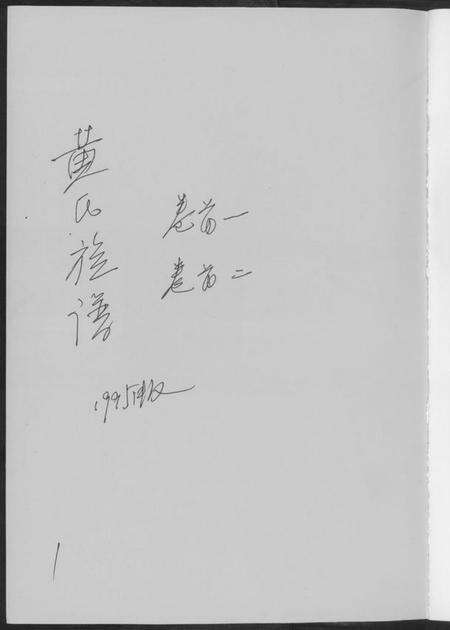 黄氏族谱
卷首一
卷首二
1995版
1